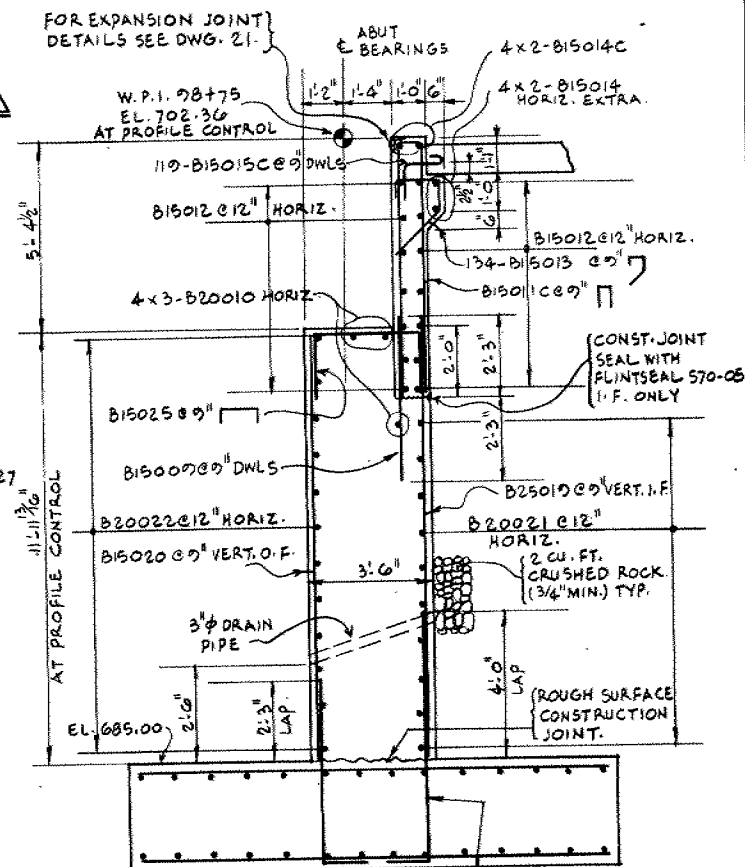 FOR EXPANSION JOINT
DETAILS SEE DWG. 21.
ABUT
℄ BEARINGS
4 x 2-B15014C
4 x 2-B15014
HORIZ. EXTRA.
1'-2"
1'-4"
1'-0"
6"
W.P.1. 98+75
EL. 702.36
AT PROFILE CONTROL
119-B15015C@9" DWLS
B15012 @ 12" HORIZ.
5'-4½"
2½"
1'-0"
6"
B15012@12" HORIZ.
134-B15013 @9"
B15011C@9"
4 x 3-B20010 HORIZ.
2'-0"
2'-3"
CONST. JOINT
SEAL WITH
FLINTSEAL 570-05
I.F. ONLY
B15025@9"
2'-3"
B15009@9" DWLS
27
11'-11 13/16"
AT PROFILE CONTROL
B20022@12" HORIZ.
B15020@9" VERT. O.F.
B25019@9" VERT. I.F.
B20021@12"
HORIZ.
3'-6"
2 CU. FT.
CRUSHED ROCK
(3/4" MIN.) TYP.
3"φ DRAIN
PIPE
4'-0"
LAP
2'-6"
2'-3"
LAP
EL. 685.00
ROUGH SURFACE
CONSTRUCTION
JOINT.